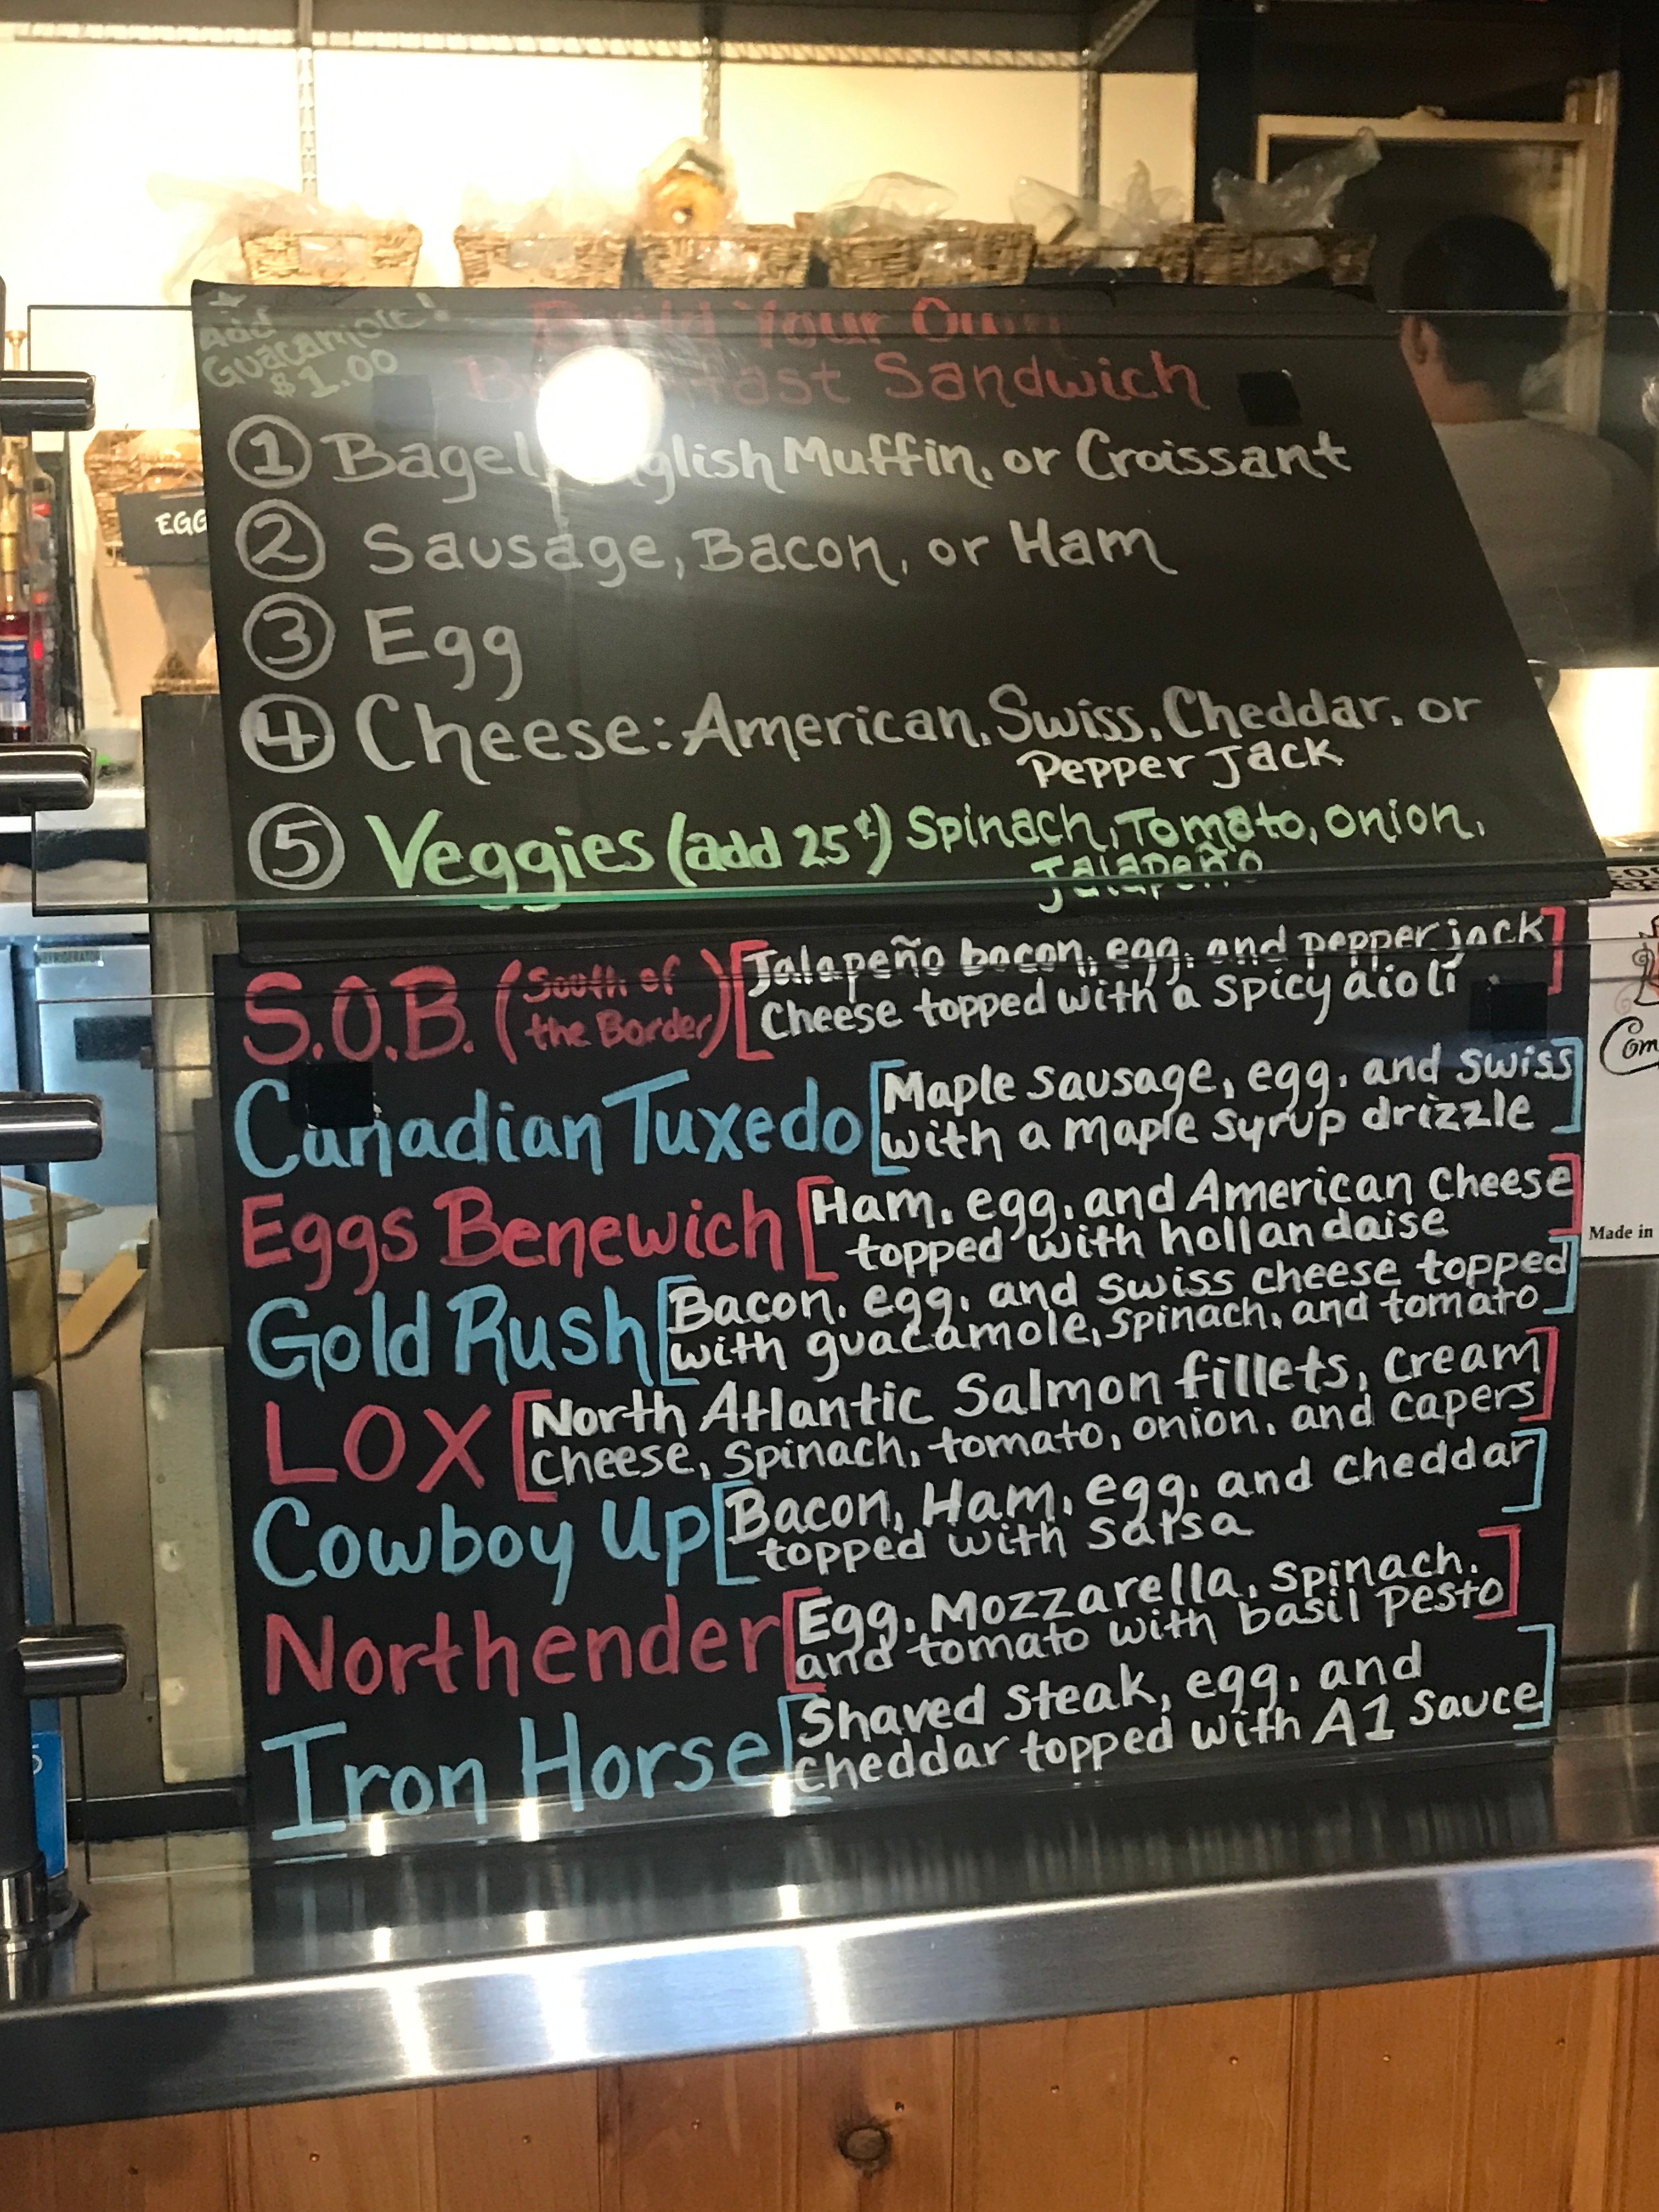 Add
Guacamole!
$1.00
Build Your Own
Breakfast Sandwich
1 Bagel, English Muffin, or Croissant
2 Sausage, Bacon, or Ham
3 Egg
4 Cheese: American, Swiss, Cheddar, or
Pepper Jack
5 Veggies (add 25¢) Spinach, Tomato, Onion,
Jalapeño
EGG
S.O.B. (South of the Border) [Jalapeño bacon, egg, and pepper jack
Cheese topped with a spicy aioli]
Canadian Tuxedo [Maple sausage, egg, and swiss
with a maple syrup drizzle]
Eggs Benewich [Ham, egg, and American cheese
topped with hollandaise]
Gold Rush [Bacon, egg, and swiss cheese topped
with guacamole, spinach, and tomato]
LOX [North Atlantic Salmon fillets, cream
cheese, spinach, tomato, onion, and capers]
Cowboy Up [Bacon, Ham, egg, and cheddar
topped with salsa]
Northender [Egg, Mozzarella, spinach,
and tomato with basil pesto]
Iron Horse [Shaved steak, egg, and
cheddar topped with A1 Sauce]
Made in